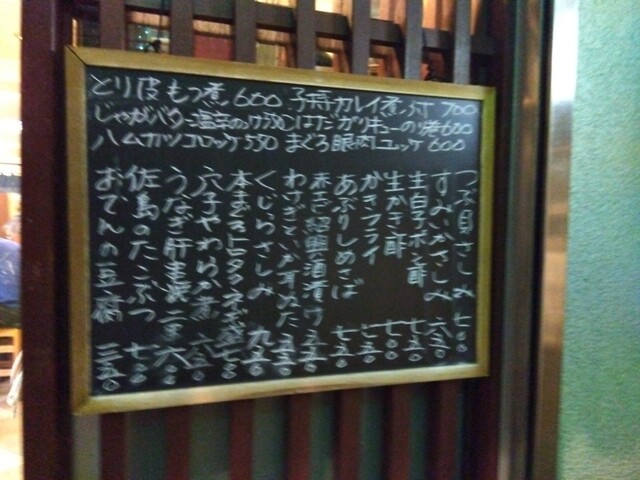 とり皮もつ煮 600 子持カレイ煮付 700
じゃがバター塩辛のっけ550 はだか
ハムカツコロッケ550 まぐろ眼肉ユッケ 600
つぶ貝さしみ 七〇〇
すみいかさしみ 六五〇
生白子ポン酢 七五〇
生かき酢 七〇〇
かきフライ 七五〇
あぶりしめさば 七五〇
赤えび紹興酒漬け 五五〇
わかさぎといか天ぷら
くじらさしみ 九五〇
本まぐろヒタタネギ盛 七五〇
穴子やわらか煮 六五〇
うなぎ肝 六〇〇
佐島のたこぶつ 七五〇
おでんの豆腐 二五〇